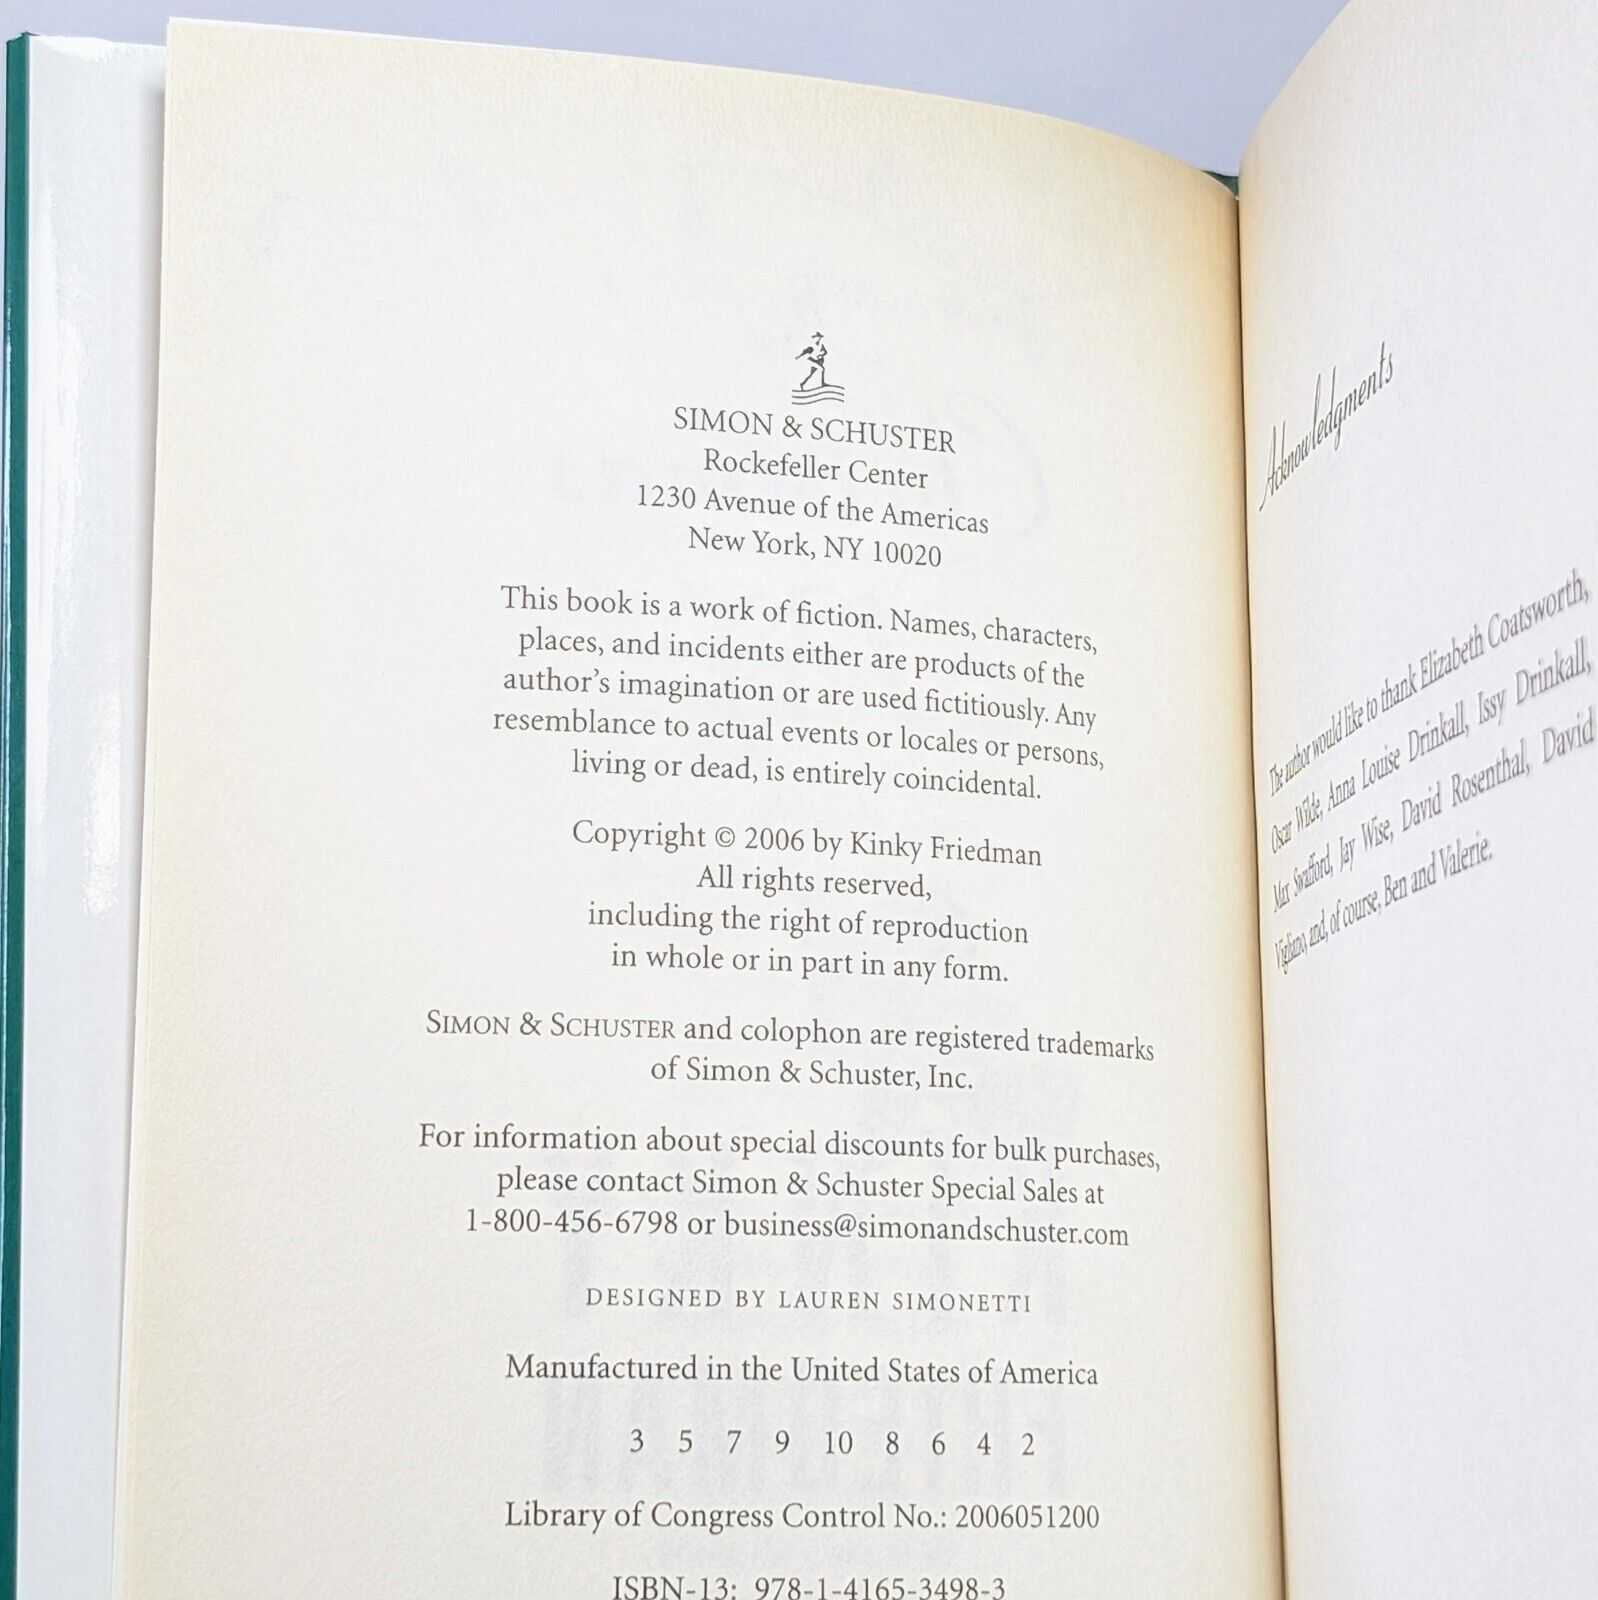 SIMON & SCHUSTER
Rockefeller Center
1230 Avenue of the Americas
New York, NY 10020
This book is a work of fiction. Names, characters,
places, and incidents either are products of the
author's imagination or are used fictitiously. Any
resemblance to actual events or locales or persons,
living or dead, is entirely coincidental.
Copyright © 2006 by Kinky Friedman
All rights reserved,
including the right of reproduction
in whole or in part in any form.
SIMON & SCHUSTER and colophon are registered trademarks
of Simon & Schuster, Inc.
For information about special discounts for bulk purchases,
please contact Simon & Schuster Special Sales at
1-800-456-6798 or business@simonandschuster.com
DESIGNED BY LAUREN SIMONETTI
Manufactured in the United States of America
3 5 7 9 10 8 6 4 2
Library of Congress Control No.: 2006051200
ISBN-13: 978-1-4165-3498-3
Acknowledgments
The author would like to thank Elizabeth Coatsworth,
Oscar Wilde, Anna Louise Drinkall, Issy Drinkall,
Max Swafford, Jay Wise, David Rosenthal, David
Vigliano, and, of course, Ben and Valerie.